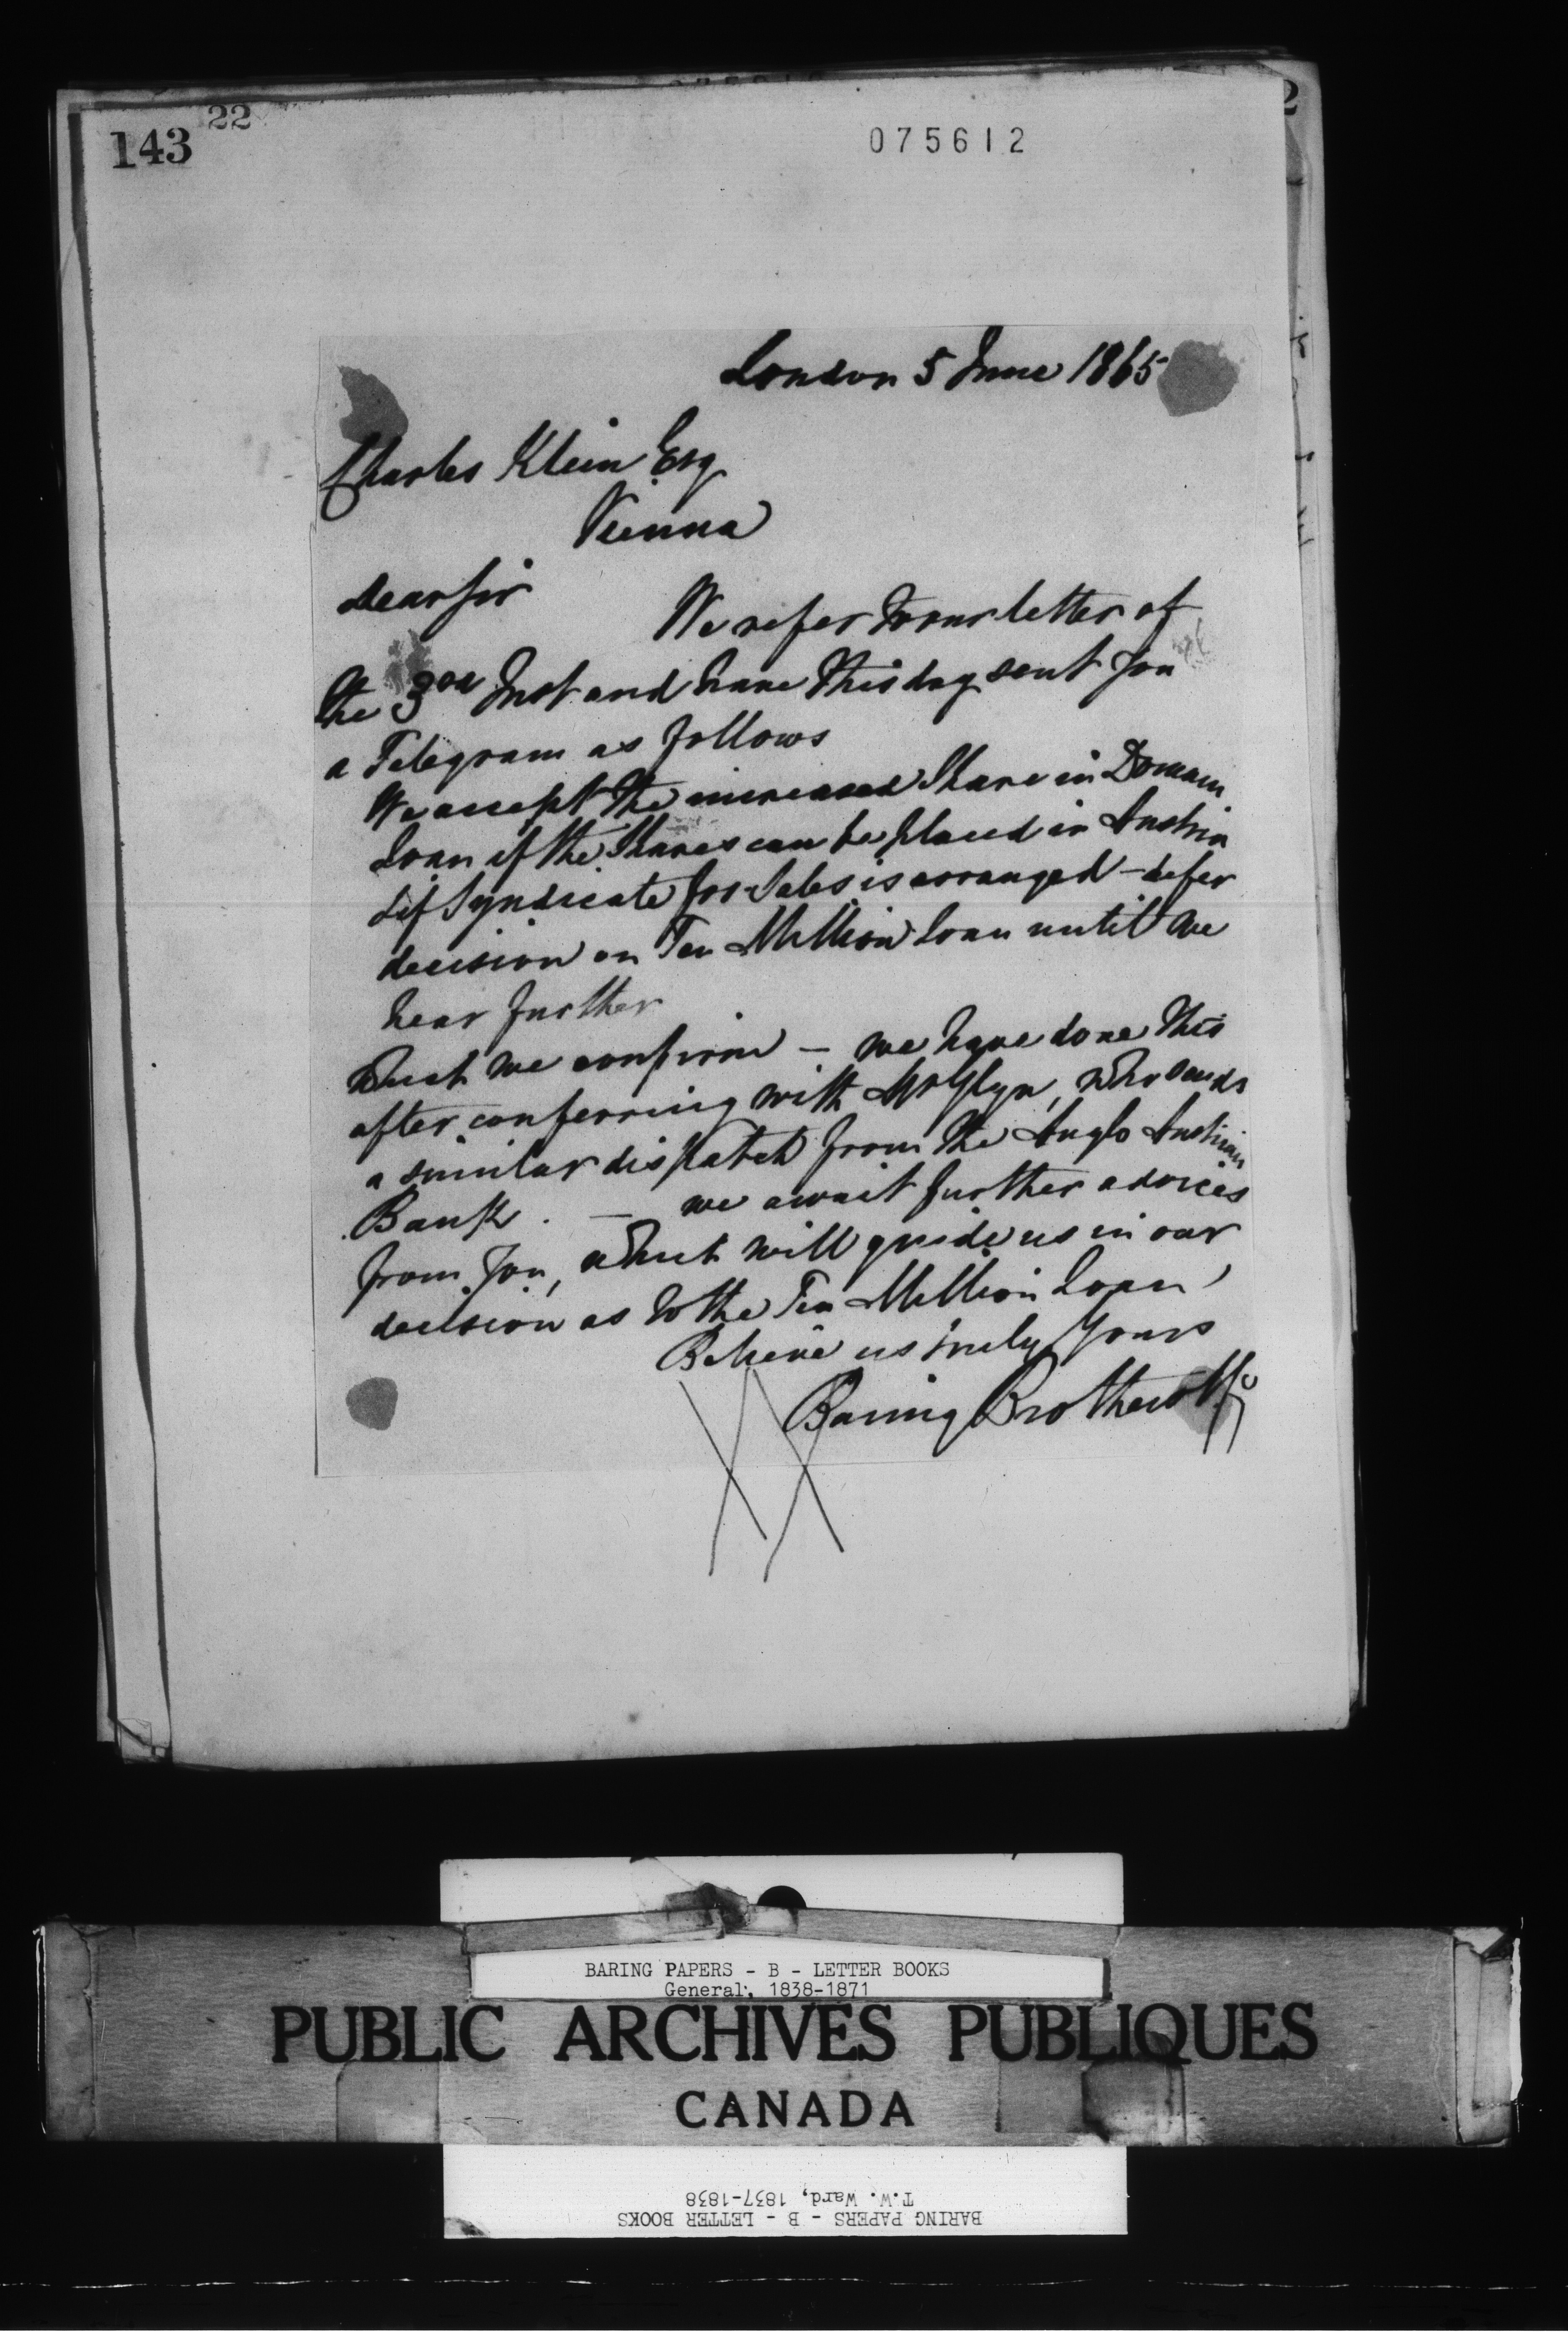 143 22
075612
London 5 June 1865
Charles Klein Esq
Vienna
Dear Sir
We refer to our letter of
the 3rd Inst and have this day sent you
a Telegram as follows
We accept the increased Share in Domain
Loan if the Shares can be placed in Austria
& if Syndicate for Sales is arranged – defer
decision on Ten Million Loan until we
hear further
which we confirm – we have done this
after conferring with Mr Glyn, who sends
a similar dispatch from the Anglo Austrian
Bank. – we await further advices
from you, which will guide us in our
decision as to the Ten Million Loan
Believe us truly Yours
Baring Brothers & Co
BARING PAPERS - B - LETTER BOOKS
General, 1838-1871
PUBLIC ARCHIVES PUBLIQUES
CANADA
T.W. Ward, 1837-1838
BARING PAPERS - B - LETTER BOOKS